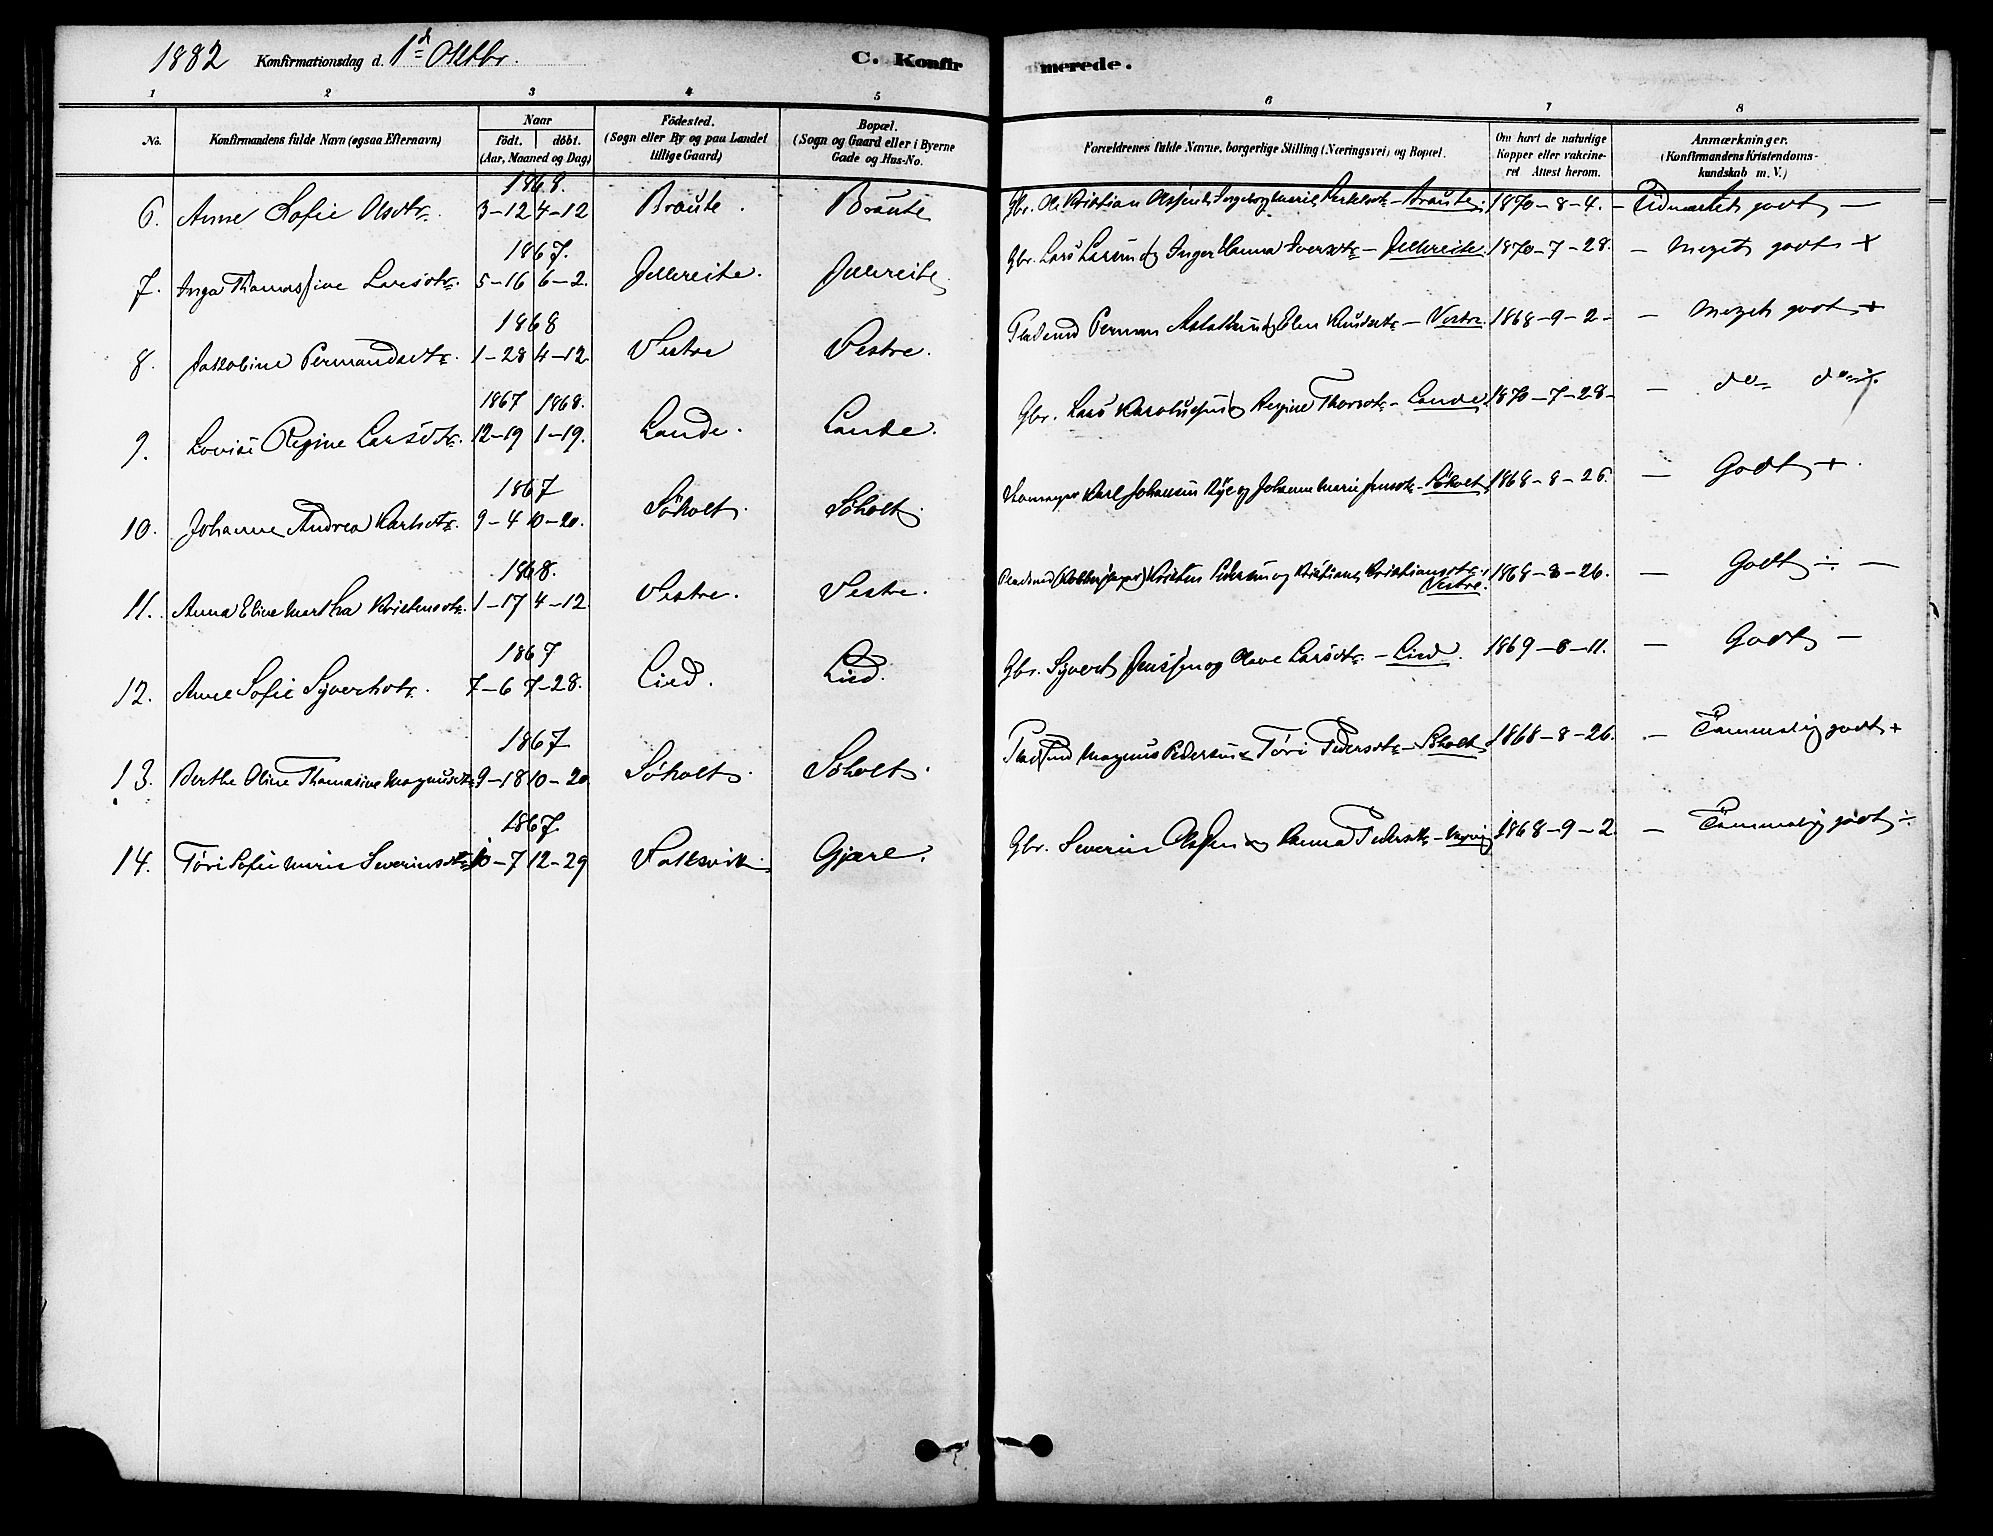 1882 Konfirmationsdag d. 1d Oktbr. C. Konfirmerede.
1 2 3 4 5 6 7 8
No. Konfirmandens fulde Navn (ogsaa Efternavn) Naar födt. döbt. (Aar, Maaned og Dag) Födested. (Sogn eller By og paa Landet tillige Gaard) Bopæl. (Sogn og Gaard eller i Byerne Gade og Hus-No. Forældrenes fulde Navne, borgerlige Stilling (Næringsvei) og Bopæl. Om havt de naturlige Kopper eller vakcineret Attest herom. Anmærkninger. (Konfirmandens Kristendomskundskab m. V.)
1868.
6. Anne Sofie Olsdtr. 3-12 4-12 Braute. Braute Gbr. Ole Kristian Ingeborg Braute. 1870-8-4. - godt -
1867.
7. Inga Thomassine Larsdtr. 5-16 6-2. Jellereite. Jellereite Gbr. Lars Larsen og Inger Hanna Iversdtr - Jellereite 1870-7-28. - Meget godt +
1868
8. Jakobine Permandsdtr. 1-28 4-12. Vestre Vestre. Pladsmd Perman og Elen Knudsdtr - Vestre 1868-9-2- - Meget godt +
1867 1868.
9. Lovise Regine Larsdtr. 12-19 1-19. Lande. Lande. Gbr. Lars og Regine Thorsdtr - Lande 1870-7-28- - do do
1867
10. Johanne Andrea Karlsdtr. 9-4 10-20. Söholt. Söholt. Karl Johansen og Johanne Marie Jensdtr - Söholt. 1868-8-26. - Godt +.
1868.
11. Anna Eline Martha Kristensdtr. 1-17 4-12. Vestre. Vestre. Kristen Pedersen og Kristiane Kristiansdtr. Vestre. 1868-8-26. - Godt ÷ -
1867
12. Anne Sofie Syvertsdtr. 7-6 7-28. Lied. Lied. Gbr. Syvert Jenssen og Olave Larsdtr - Lied. 1869-8-11. - Godt -
1867
13. Berthe Oline Thomasine Magnusdtr 9-18 10-20 Söholt. Söholt. Magnus Pedersen Töri Pedersdtr - Söholt. 1868-8-26. - Temmelig godt +
1867
14. Töri Sofie Marie Severinsdtr 10-7 12-29 Gjære. Gbr. Severin Olsen og Hanna Pedersdtr - 1868-9-2. - Temmelig godt ÷